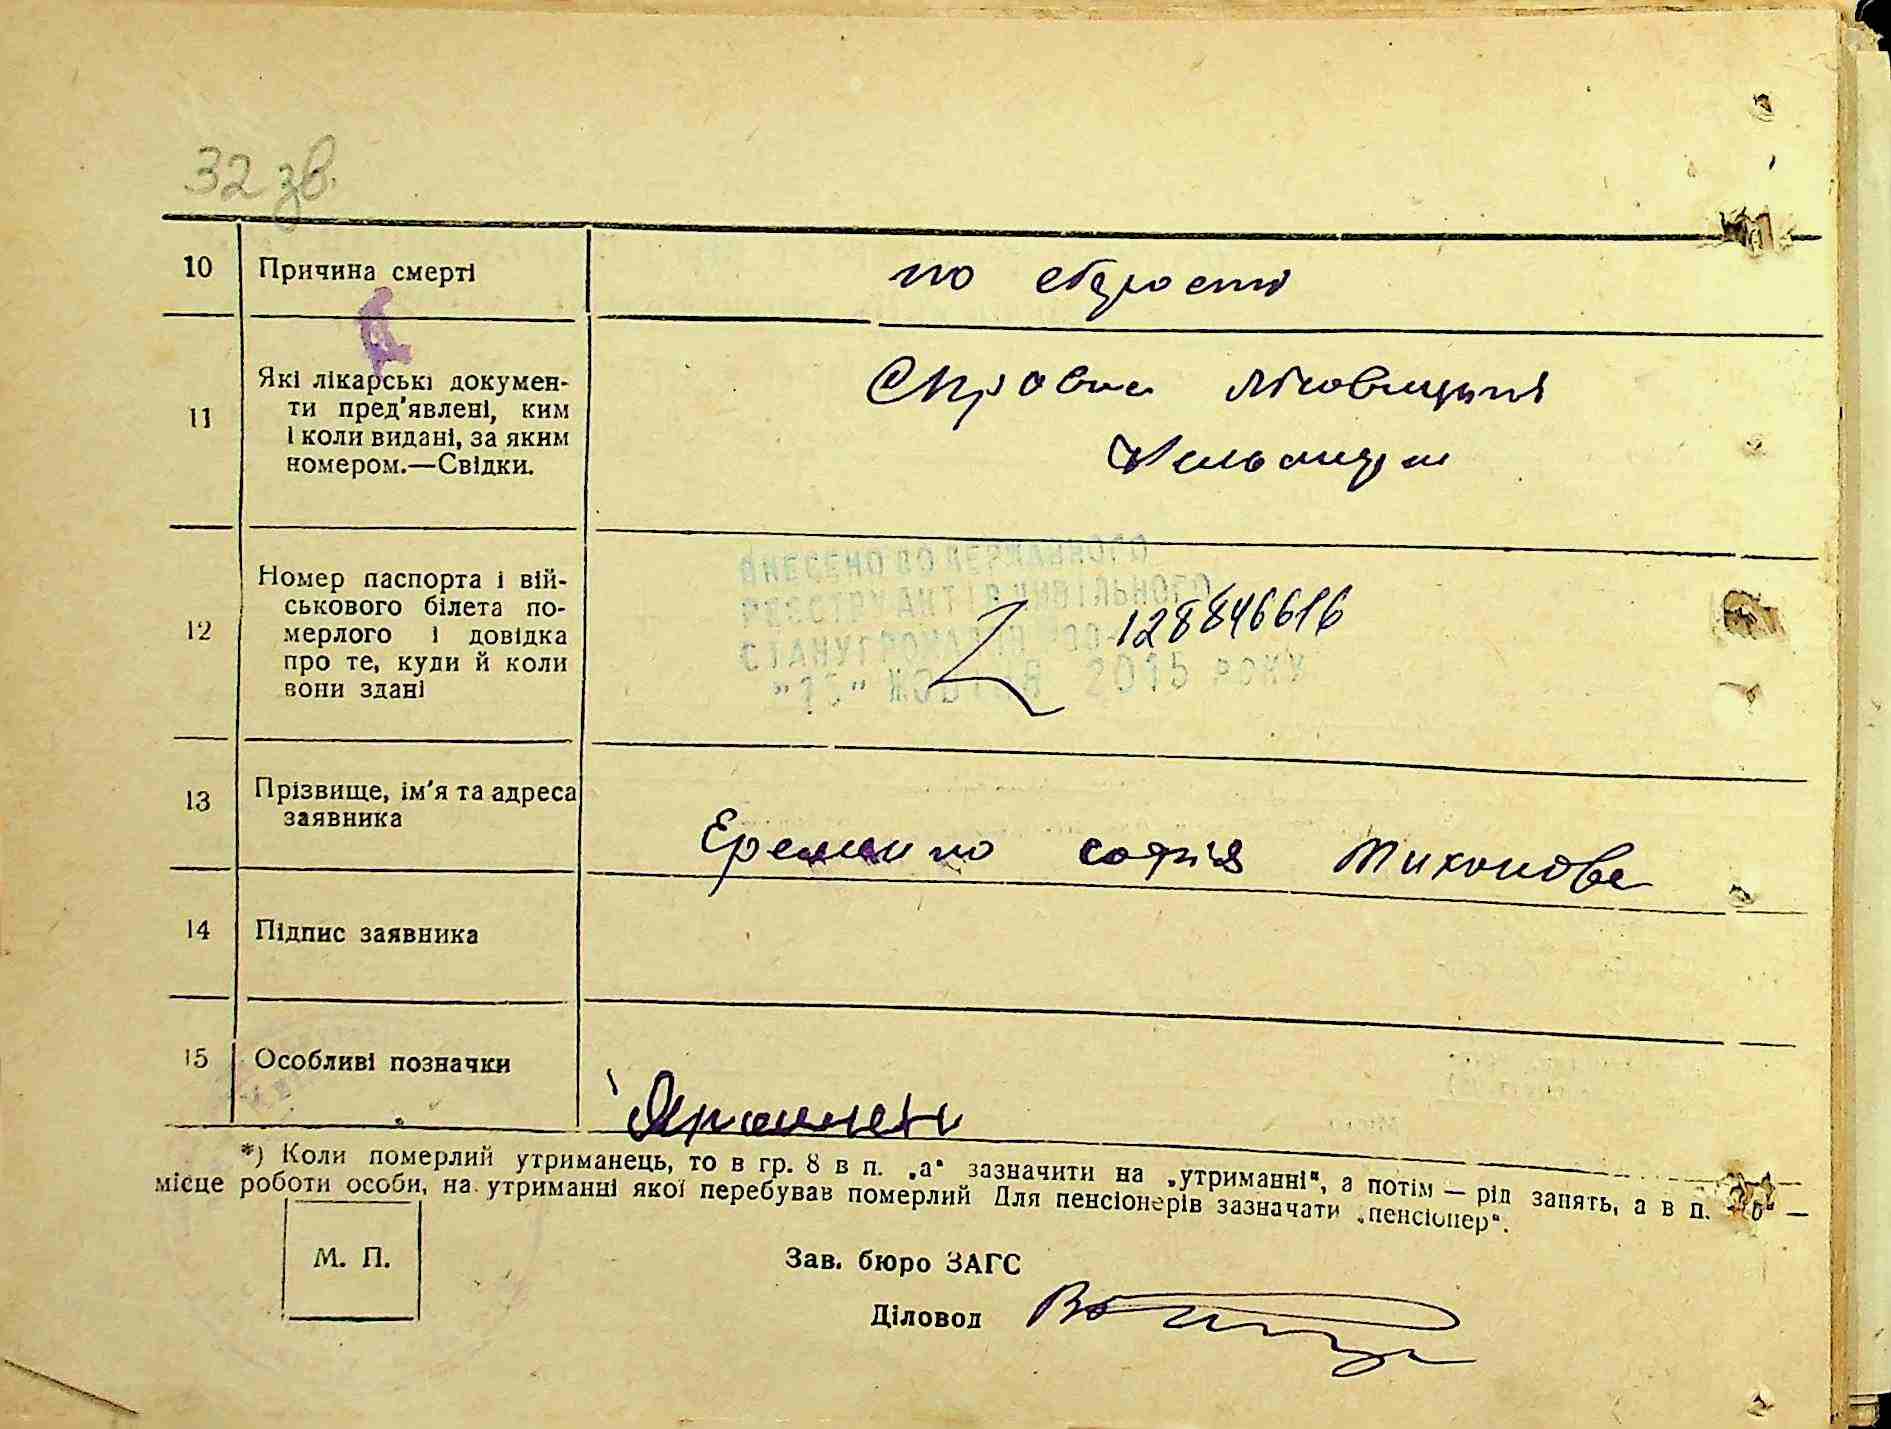 32 зв.
10 Причина смерті по старости
11 Які лікарські докумен-
ти пред'явлені, ким
і коли видані, за яким
номером.—Свідки.
Справка
12 Номер паспорта і вій-
ськового білета по-
мерлого і довідка
про те, куди й коли
вони здані
ВНЕСЕНО ДО ДЕРЖАВНОГО
РЕЄСТРУ АКТІВ ЦИВІЛЬНОГО
СТАНУ ГРОМАДЯН 00-128846616
"15" ЖОВТНЯ 2015 РОКУ
13 Прізвище, ім'я та адреса
заявника
софія Тихоновна
14 Підпис заявника
15 Особливі позначки
*) Коли померлий утриманець, то в гр. 8 в п. „а" зазначити на „утриманні", а потім — рід занять, а в п. „б" —
місце роботи особи, на утриманні якої перебував померлий Для пенсіонерів зазначати „пенсіонер".
М. П.
Зав. бюро ЗАГС
Діловод